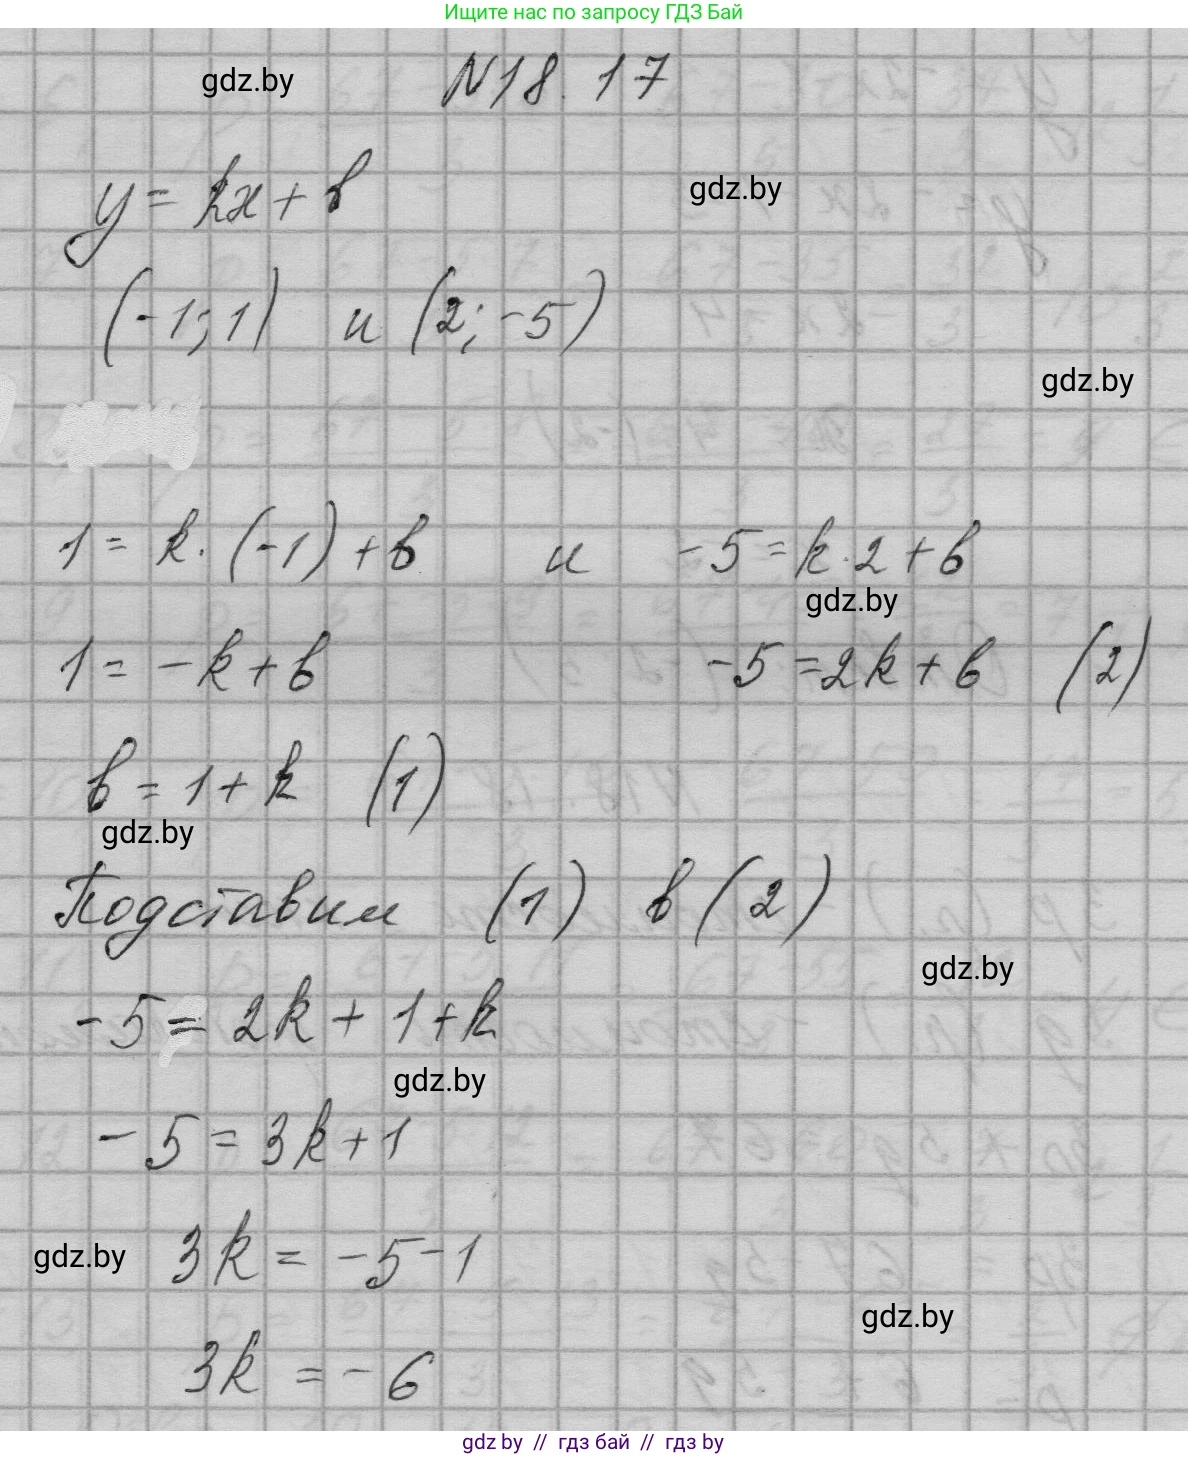 Ищите нас по запросу ГДЗ Бай
gdz.by N18.17
y = kx + b gdz.by
(-1; 1) и (2; -5)
gdz.by
1 = k · (-1) + b и -5 = k · 2 + b
gdz.by
1 = -k + b -5 = 2k + b (2)
b = 1 + k (1)
gdz.by
Подставим (1) в (2)
gdz.by
-5 = 2k + 1 + k
gdz.by
-5 = 3k + 1
gdz.by 3k = -5 - 1
gdz.by
3k = -6
gdz by // гдз бай // гдз by